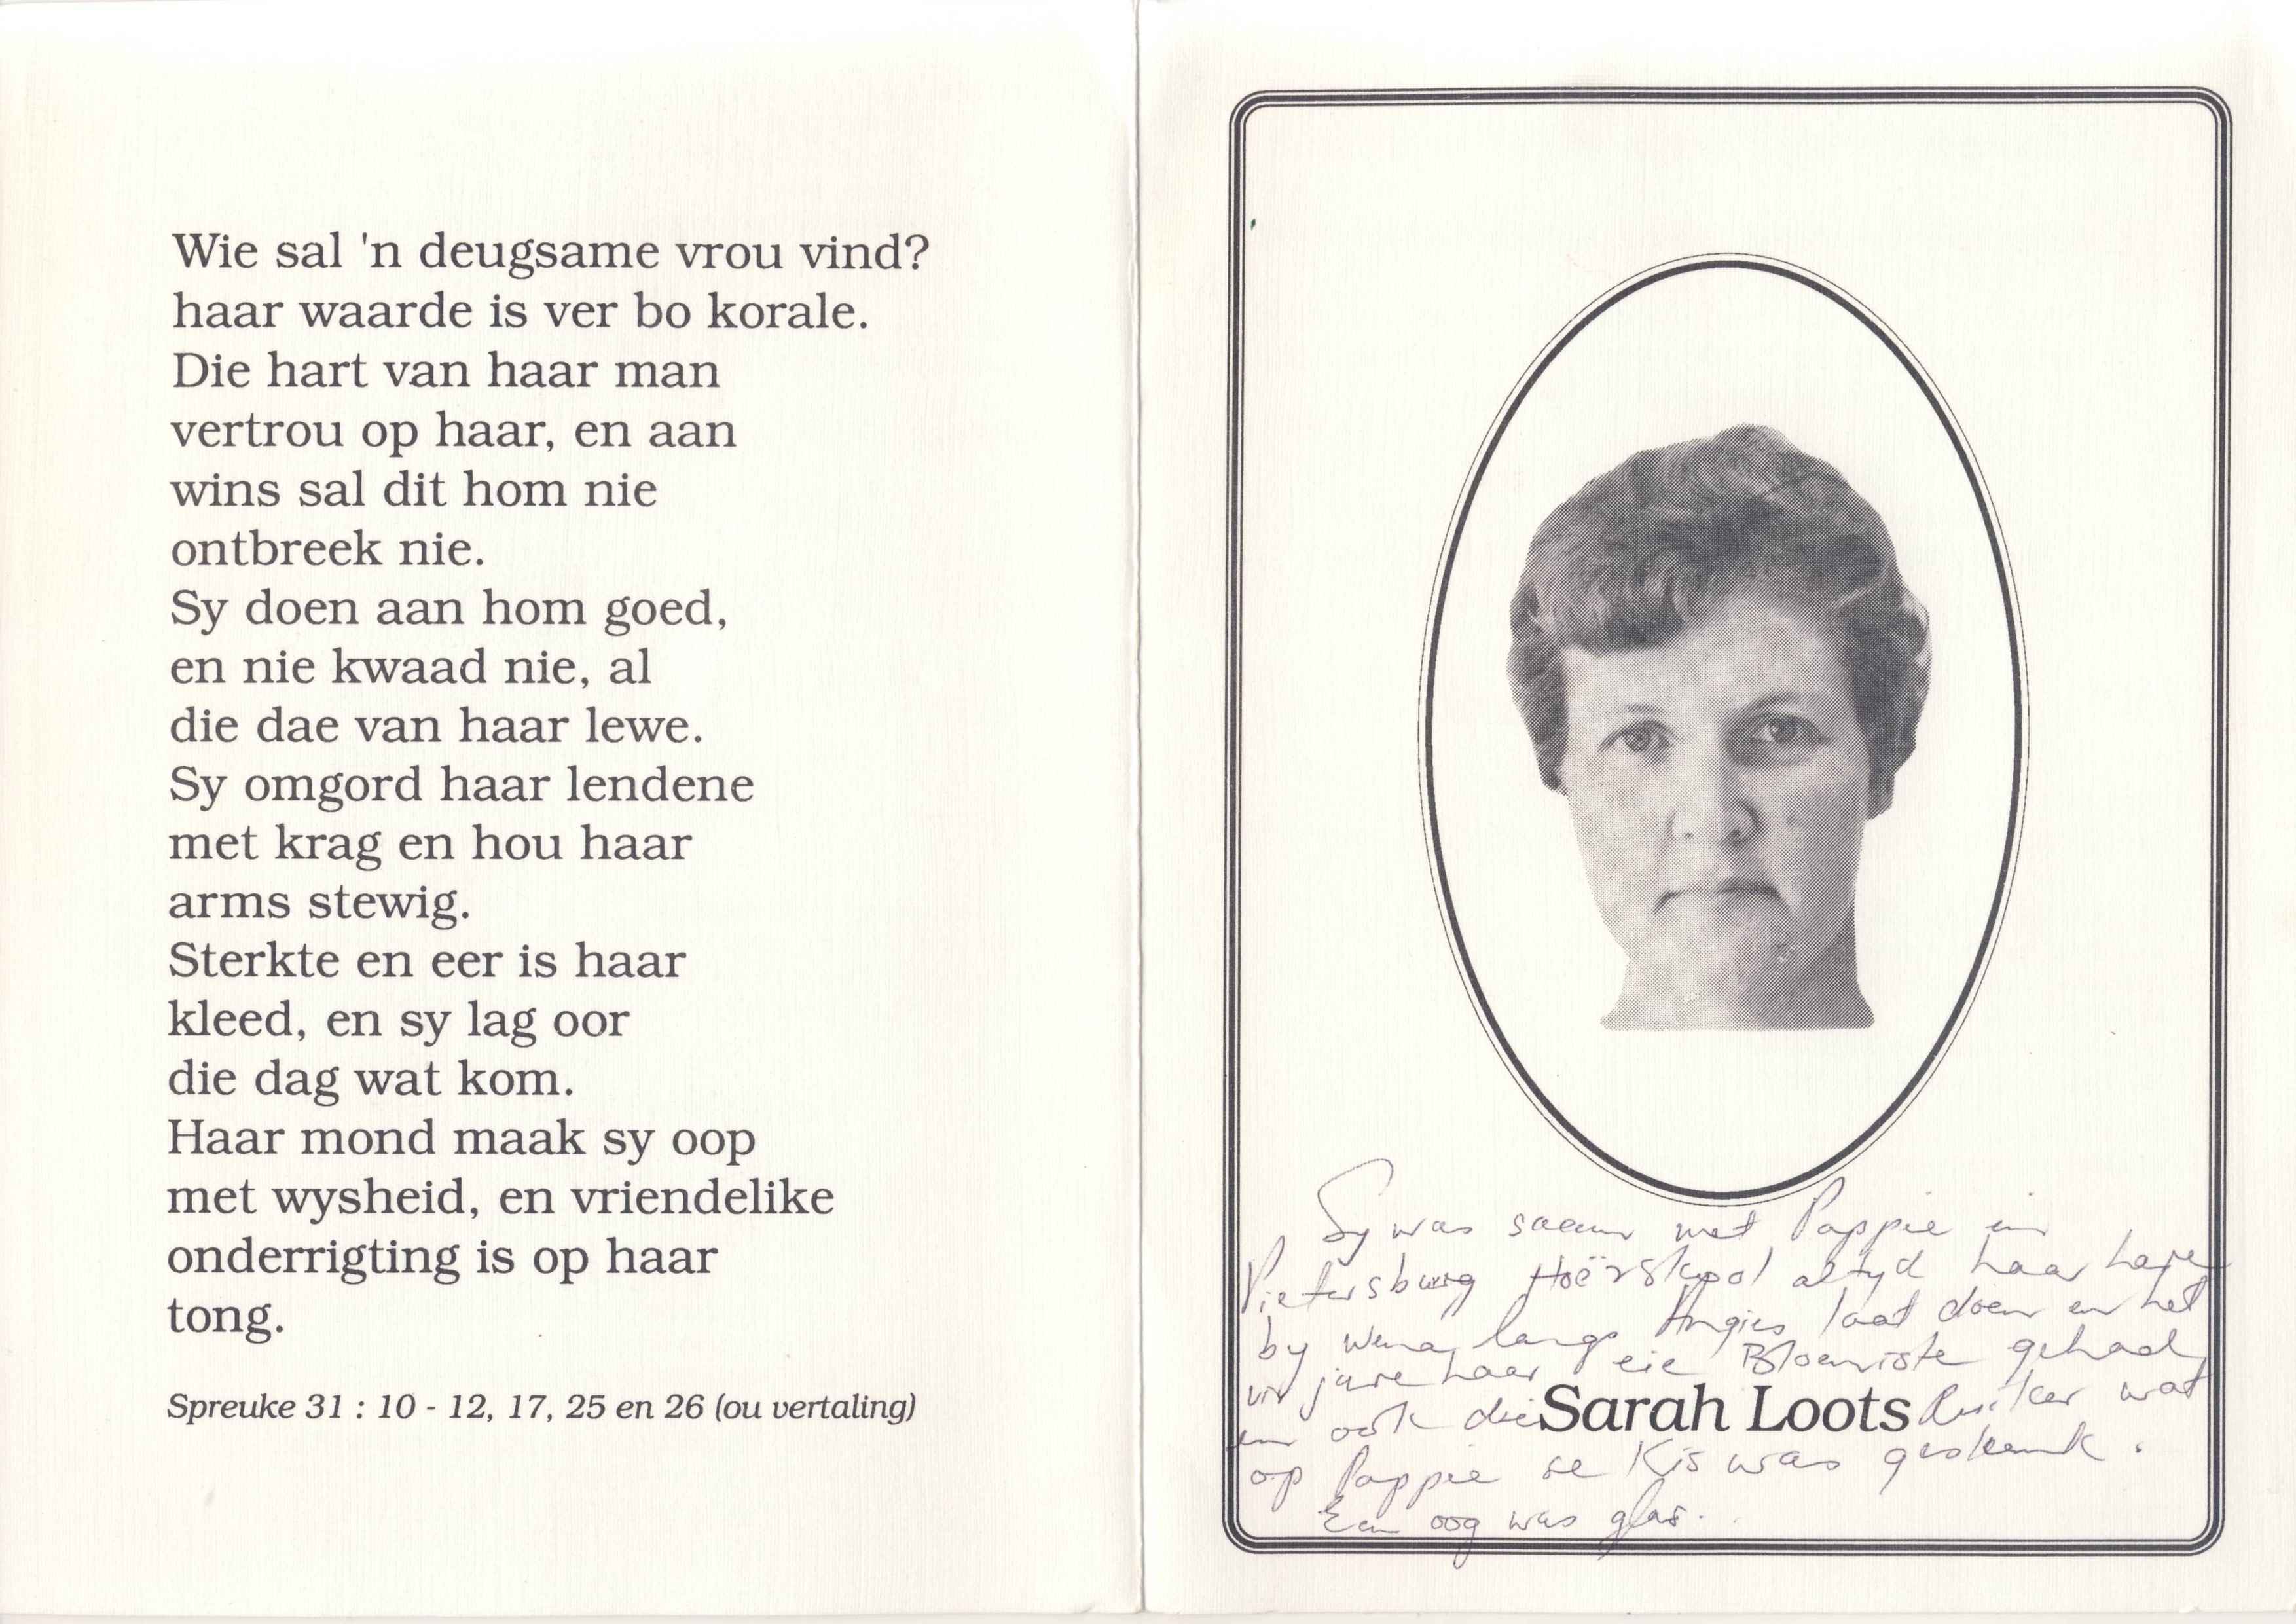 Wie sal 'n deugsame vrou vind?
haar waarde is ver bo korale.
Die hart van haar man
vertrou op haar, en aan
wins sal dit hom nie
ontbreek nie.
Sy doen aan hom goed,
en nie kwaad nie, al
die dae van haar lewe.
Sy omgord haar lendene
met krag en hou haar
arms stewig.
Sterkte en eer is haar
kleed, en sy lag oor
die dag wat kom.
Haar mond maak sy oop
met wysheid, en vriendelike
onderrigting is op haar
tong.
Spreuke 31 : 10 - 12, 17, 25 en 26 (ou vertaling)
Sy was saam met Pappie in
Pietersburg Hoërskool altyd haar hare
by Wena langs Angies laat doen en het
vir jare haar eie Bloemiste gehad
en ook die Ruiker wat
Sarah Loots
op Pappie se Kis was geskenk.
Een oog was glas.